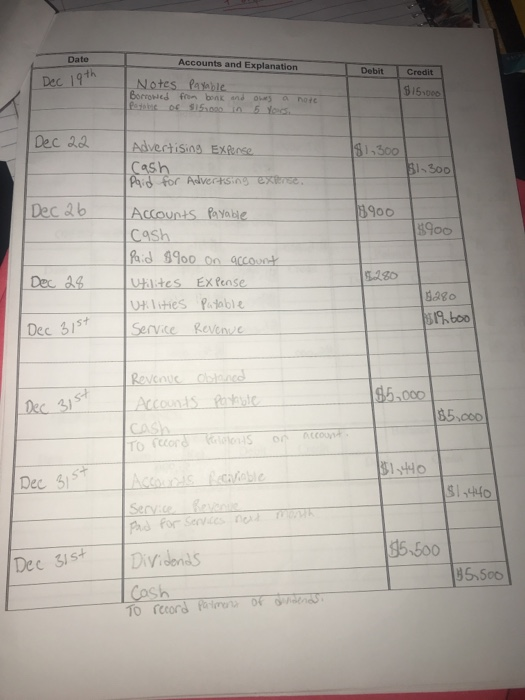 Date Accounts and Explanation Debit Credit
Dec 19th Notes Payable $15,000
Borrowed from bank and owes a note
Payable of $15,000 in 5 Years.
Dec 22 Advertising Expense $1,300
Cash $1,300
Paid for Advertising expense.
Dec 26 Accounts Payable $900
Cash $900
Paid $900 on account
Dec 28 Utilites Expense $280
Utilities Payable $280
Dec 31st Service Revenue $19,600
Revenue Obtained
Dec 31st Accounts Payable $5,000
Cash $5,000
To record on account.
Dec 31st Accounts $1,440
Service Revenue $1,440
Paid For Services next month
Dec 31st Dividends $5,500
Cash $5,500
To record of dividends.